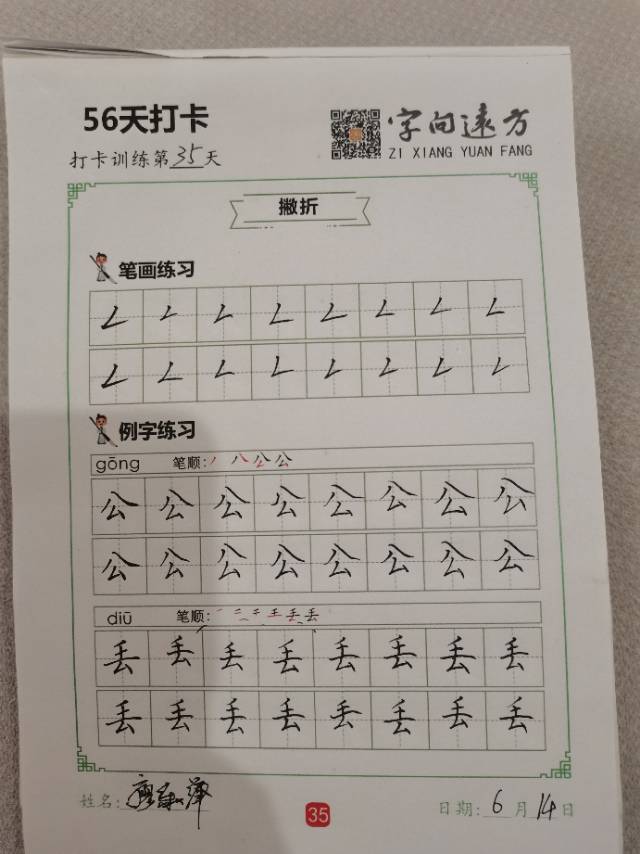 56天打卡
字向远方
ZI XIANG YUAN FANG
打卡训练第35天
撇折
笔画练习
𠃋𠃋𠃋𠃋𠃋𠃋𠃋𠃋
𠃋𠃋𠃋𠃋𠃋𠃋𠃋𠃋
例字练习
gōng 笔顺:丿 八 公 公
公公公公公公公公
公公公公公公公公
diū 笔顺:
丢丢丢丢丢丢丢丢
丢丢丢丢丢丢丢丢
姓名:
35
日期:6月14日